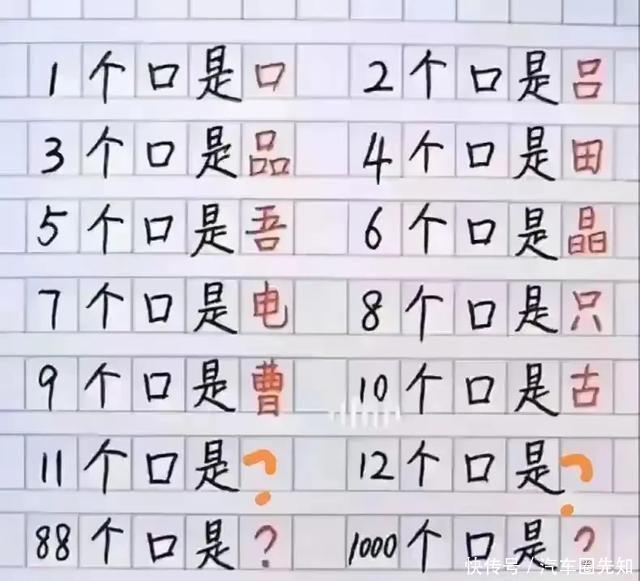 1个口是口 2个口是吕
3个口是品 4个口是田
5个口是吾 6个口是晶
7个口是电 8个口是只
9个口是曹 10个口是古
11个口是? 12个口是?
88个口是? 1000个口是?
快传号/汽车圈先知